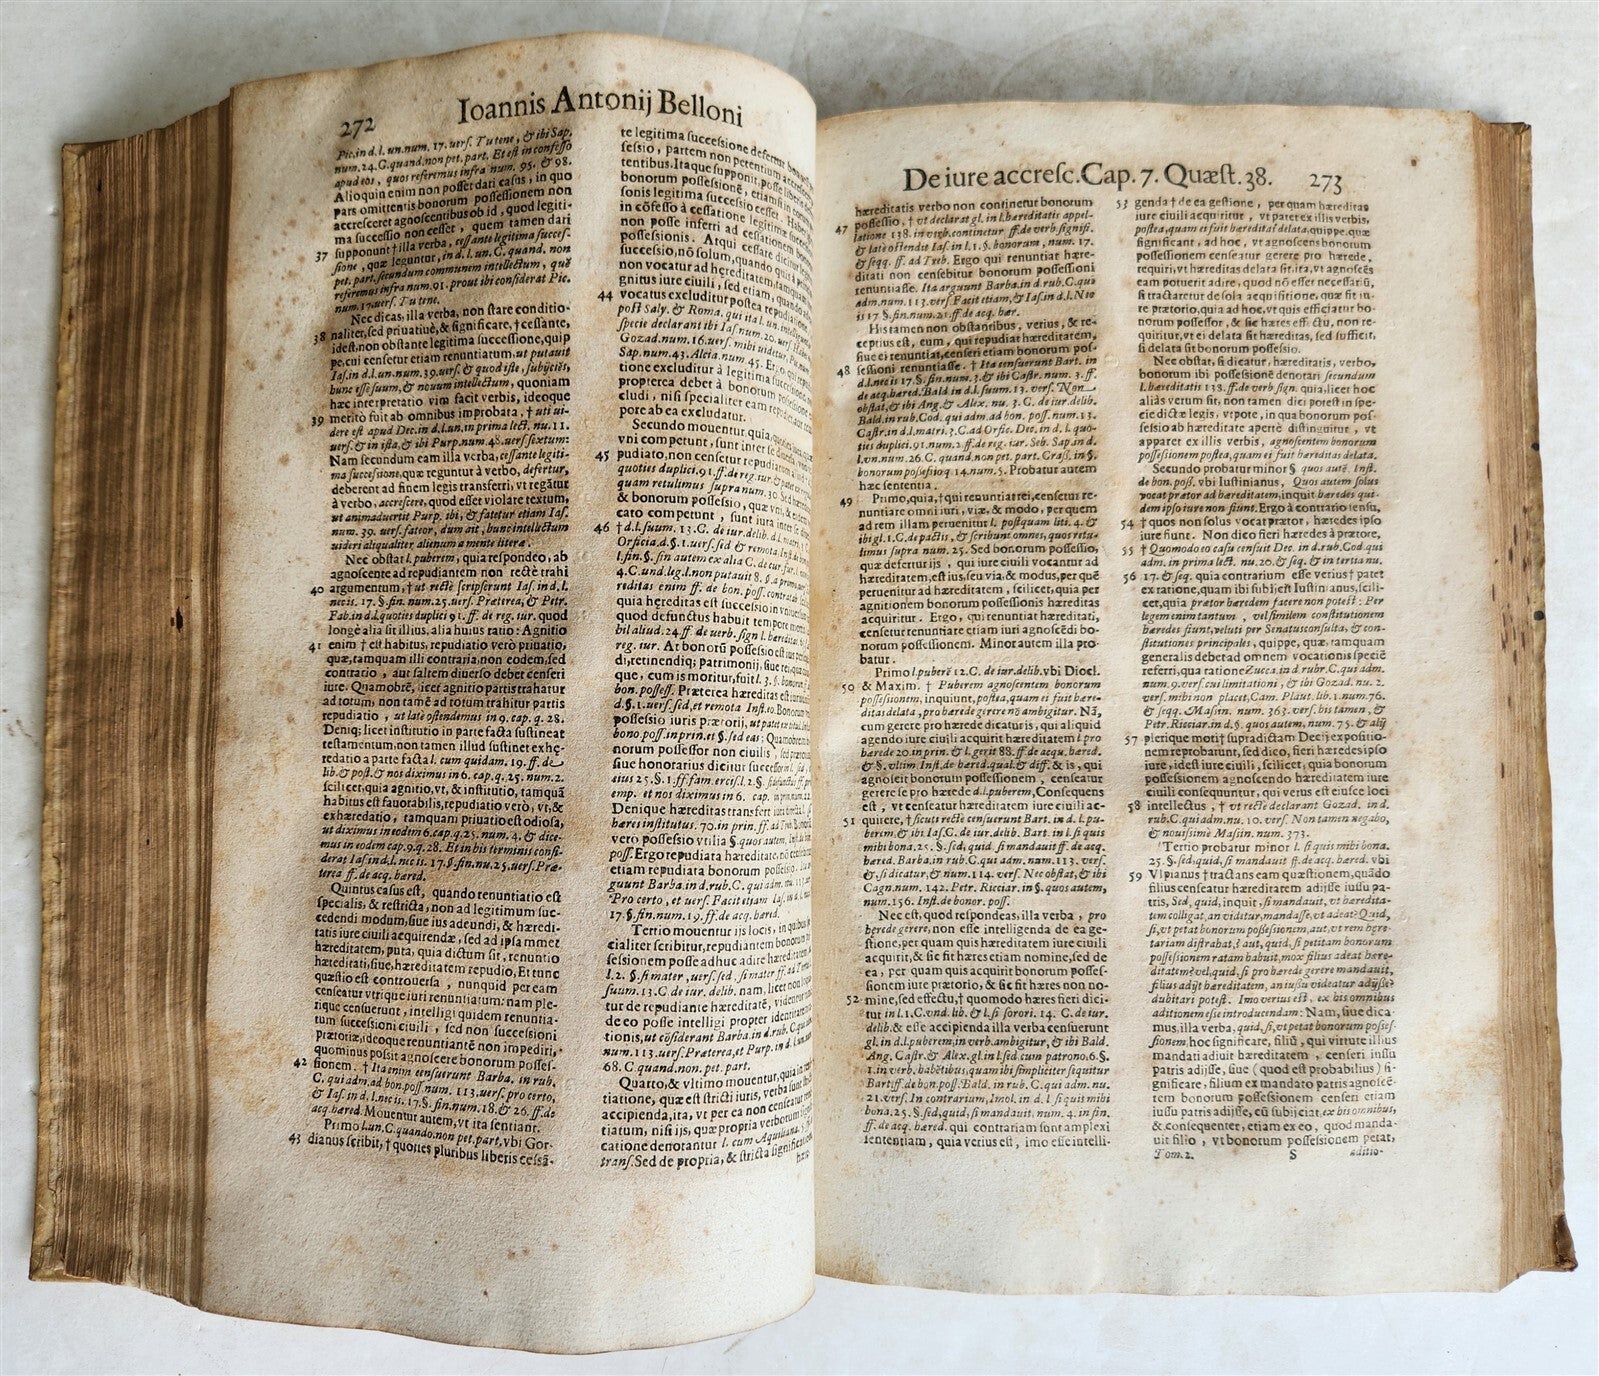 272
Ioannis Antonij Belloni
Pic. in d. l. un. num. 17. uers. Tu tene, & ibi Sap.
num. 24. C. quand. non pet. part. Et est in confesso
apud eos, quos referemus infra num. 95. & 98.
Alioquin enim non posset dari casus, in quo
pars omittentis bonorum possessionem non
accresceret agnoscentibus ob id, quod legiti-
ma successio non cesset, quem tamen dari
37 supponunt † illa verba, cessante legitima succes-
sione, quæ leguntur, in d. l. un. C. quand. non
pet. part. secundum communem intellectum, quē
referemus infra num. 91. prout ibi considerat Pic.
num. 17. uers. Tu tene.
Nec dicas, illa verba, non stare conditio-
38 naliter, sed priuatiuè, & significare, † cessante,
idest, non obstante legitima successione, quip
pe, cui censetur etiam renuntiatum, ut putauit
Ias. in d. l. un. num. 39. uers. & quod iste, subijciēs,
hunc esse suum, & nouum intellectum, quoniam
hæc interpretatio vim facit verbis, ideoque
39 meritò fuit ab omnibus improbata, † uti ui-
dere est apud Dec. in d. l. un. in prima lect. nu. 11.
uers. & in ista, & ibi Purp. num. 48. uers. sextum:
Nam secundum eam illa verba, cessante legiti-
ma successione, quæ reguntur à verbo, defertur,
deberent ad finem legis transferri, vt regātur
à verbo, accrescere, quod esset violare textum,
ut animaduertit Purp. ibi, & fatetur etiam Ias.
num. 39. uers. fateor, dum ait, hunc intellectum
uideri aliqualiter alienum a mente literæ.
Nec obstat l. puberem, quia respondeo, ab
agnoscente ad repudiantem non rectè trahi
40 argumentum, † ut rectè scripserunt Ias. in d. l.
nec is. 17. §. fin. num. 25. uers. Præterea, & Petr.
Fab. in d. l. quoties duplici 91. ff. de reg. iur. quod
longè alia sit illius, alia huius ratio: Agnitio
41 enim † est habitus, repudiatio verò priuatio,
quæ, tamquam illi contraria, non eodem, sed
contrario, aut saltem diuerso debet censeri
iure. Quamobrē, licet agnitio partis trahatur
ad totum, non tamē ad totum trahitur partis
repudiatio, ut latè ostendemus in 9. cap. q. 28.
Deniq; licet institutio in parte facta sustineat
testamentum, non tamen illud sustinet exhę-
redatio a parte facta l. cum quidam. 19. ff. de
lib. & post. & nos diximus in 6. cap. q. 25. num. 2.
scilicet, quia agnitio, vt, & institutio, tamquā
habitus est fauorabilis, repudiatio verò, vt, &
exhæredatio, tamquam priuatio est odiosa,
ut diximus in eodem 6. cap. q. 25. num. 4. & dice-
mus in eodem cap. 9. q. 28. Et in his terminis consi-
derat Ias. in d. l. nec is. 17. §. fin. nu. 25. uers. Præ-
terea ff. de acq. hæred.
Quintus casus est, quando renuntiatio est
specialis, & restricta, non ad legitimum suc-
cedendi modum, siue ius adeundi, & hæredi-
tatis iure ciuili acquirendæ, sed ad ipsammet
hæreditatem, puta, quia dictum sit, renuntio
hæreditati, siue, hæreditatem repudio, Et tunc
quæstio est controuersa, nunquid per eam
censeatur vtrique iuri renuntiatum: nam ple-
rique censuerunt, intelligi quidem renuntia-
tum successioni ciuili, sed non successioni
prætoriæ, ideoque renuntiantē non impediri,
quominus possit agnoscere bonorum posses-
42 sionem. † Ita enim censuerunt Barba. in rub.
C. qui adm. ad bon. poss. num. 113. uers. pro certo,
& Ias. in d. l. nec is. 17. §. fin. num. 18. & 26. ff. de
acq. hæred. Mouentur autem, vt ita sentiant.
Primo l. un. C. quando. non pet. part. vbi Gor-
43 dianus scribit, † quoties pluribus liberis cessā-
te legitima successione defertur
sessio, partem non petentium accrescere
tentibus. Itaque supponit, posse liberis
bonorum possessionē, etiamsi
sonis legitima successio cesset.
in cōfesso à cessatione legitimæ
non posse inferri ad cessationem bonorum
possessionis. Atqui cessare dicitur
successio, nō solum, quando quis à
non vocatur ad hęreditatem, tamquam
gnitus iure ciuili, sed etiam, quando
44 vocatus excluditur postea repudiatione
post Saly. & Roma. qui ita l. un. intelligunt
specie declarant ibi Ias. num. 20. uers.
Gozad. num. 16. uers. mihi uidetur,
Sap. num. 43. Alcia. num. 45. Ergo qui
tione excluditur à legitima successione
propterea debet à bonorum possessione
cludi, nisi specialiter eam repudiet
pore ab ea excludatur.
Secundo mouentur quia,
vni competunt, sunt inter se
45 pudiato, non censetur repudiatum
quoties duplici. 91. ff. de reg. iur.
quam retulimus supra num. 30. Sed
& bonorum possessio, quæ vni, &
cato competunt, sunt iura inter se
46 † d. l. suum. 13. C. de iur. delib.
Orficia. d. §. 1. uers. sed & remota. Inst.
l. fin. §. sin autem ex alia C. de cur. fur.
4. C. und. leg. l. non putauit 8. §.
reditas enim ff. de bon. poss. contra tab.
quia hęreditas est successio in vniuersum
quod defunctus habuit tempore mortis
bil aliud. 24. ff. de verb. sign. l. hæreditas
reg. iur. At bonorū possessio est ius
di, retinendiq; patrimonij, siue rei, quæ
que, cum is moritur, fuit l. 3. §. bonorum
bon. possess. Præterea hæreditas est
d. §. 1. uers. sed, et remota Inst. eo. Bonorum
possessio iuris prætorij, ut patet
bono. poss. in prin. et §. sed eas: Quamobrem
norum possessor non ciuilis, sed
siue honorarius dicitur successor
eius 25. §. 1. ff. fam. ercis. l. 2. §.
emp. et nos diximus in 6. cap.
Denique hæreditas transfert
hæres institutus. 70. in prin. ff. ad Treb.
vero possessio vtilia §. quos autem.
poss. Ergo repudiata hæreditate, nō
etiam repudiata bonorum possessio.
guunt Barba. in d. rub. C. qui adm.
Pro certo, et uers. Facit Ias. in d. l.
17. §. fin. num. 19. ff. de acq. hæred.
Tertio mouentur ijs locis, in quibus
cialiter scribitur, repudiantem bonorum
sessionem posse adhuc adire hæreditatem
l. 2. §. si mater, uers. sed, si mater ff. ad
suum. 13. C. de iur. delib. nam, licet non
tur de repudiante hæreditatē, videntur
de eo posse intelligi propter identitatem
tionis, ut cōsiderant Barba. in d. rub. C. qui
num. 113. uers. Præterea, et Purp. in d. l. un.
68. C. quand. non pet. part.
Quarto, & vltimo mouentur, quia
tiatione, quæ est stricti iuris, verba
accipienda, ita, vt per ea non censeatur
tiatum, nisi ijs, quæ propria verborum
catione denotantur l. cum Aquiliana.
trans. Sed de propria, & stricta significatione
hære
De iure accresc. Cap. 7. Quæst. 38. 273
hæreditatis verbo non continetur bonorum
47 possessio, † vt declarat gl. in l. hæreditatis appel-
latione 138. in verb. continetur ff. de verb. signifi.
& latè ostendit Ias. in l. 1. §. bonorum, num. 17.
& seqq. ff. ad Treb. Ergo qui renuntiat hære-
ditati non censebitur bonorum possessioni
renuntiasse. Ita arguunt Barba. in d. rub. C. qui
adm. num. 113. vers. Facit etiam, & Ias. in d. l. Nec
is 17 §. fin. num. 21. ff. de acq. hær.
His tamen non obstantibus, verius, & re-
ceptius est, eum, qui repudiat hæreditatem,
siue ei renuntiat, censeri etiam bonorum pos-
48 sessioni renuntiasse. † Ita censuerunt Bart. in
d. l. nec is 17. §. fin. num. 3. & ibi Castr. num. 3. ff.
de acq. hæred. Bald in d. l. suum. 13. vers. Non
obstat, & ibi Ang. & Alex. nu. 3. C. de iur. delib.
Bald. in rub. Cod. qui adm. ad bon. poss. num. 13.
Castr. in d. l. matri. 7. C. ad Orfic. Dec. in d. l. quo-
ties duplici. 91. num. 2. ff. de reg. iur. Seb. Sap. in d.
l. vn. num. 26. C. quand. non pet. part. Grass. in §.
bonorum possessio q. 14. num. 5. Probatur autem
hæc sententia.
49 Primo, quia, † qui renuntiat rei, censetur re-
nuntiare omni iuri, viæ, & modo, per quem
ad rem illam peruenitur l. postquam liti. 4. &
ibi gl. 1. C. de pactis, & scribunt omnes, quos retu-
limus supra num. 25. Sed bonorum possessio,
quæ defertur ijs, qui iure ciuili vocantur ad
hæreditatem, est ius, seu via, & modus, per quē
peruenitur ad hæreditatem, scilicet, quia per
agnitionem bonorum possessionis hæreditas
acquiritur. Ergo, qui renuntiat hæreditati,
censetur renuntiare etiam iuri agnoscēdi bo-
norum possessionem. Minor autem illa pro-
batur.
Primo l. puberē 12. C. de iur. delib. vbi Diocl.
50 & Maxim. † Puberem agnoscentem bonorum
possessionem, inquiunt, postea, quam ei fuit hære-
ditas delata, pro hærede gerere nō ambigitur. Nā,
cum gerere pro hærede dicatur is, qui aliquid
agendo iure ciuili acquirit hæreditatem l. pro
hærede 20. in prin. & l. gerit 88. ff. de acqu. hæred.
& §. vltim. Inst. de hæred. qual. & diff. & is, qui
agnoscit bonorum possessionem, censeatur
gerere se pro hærede d. l. puberem, Consequens
est, vt censeatur hæreditatem iure ciuili ac-
51 quirere, † sicuti rectè censuerunt Bart. in d. l. pu-
berem, & ibi Ias. C. de iur. delib. Bart. in l. si quis
mihi bona. 25. §. sed, quid si mandauit ff. de acq.
hæred. Barba. in rub. C. qui adm. num. 113. vers.
& si dicatur, & num. 114. vers. Nec obstat, & ibi
Cagn. num. 142. Petr. Ricciar. in §. quos autem,
num. 156. Inst. de bonor. poss.
Nec est, quod respondeas, illa verba, pro
hęrede gerere, non esse intelligenda de ea ge-
stione, per quam quis hæreditatem iure ciuili
acquirit, & sic fit hæres etiam nomine, sed de
ea, per quam quis acquirit bonorum posses-
sionem iure prætorio, & sic fit hæres non no-
52 mine, sed effectu, † quomodo hæres fieri dici-
tur in l. 1. C. vnd. lib. & l. si sorori. 14. C. de iur.
delib. & esse accipienda illa verba censuerunt
gl. in d. l. puberem, in verb. ambigitur, & ibi Bald.
Ang. Castr. & Alex. gl. in l. sed cum patrono. 6. §.
1. in verb. habētibus, quam ibi simpliciter sequitur
Bart. ff. de bon. poss. Bald. in rub. C. qui adm. nu.
21. vers. In contrarium, Imol. in d. l. si quis mihi
bona. 25. §. sed, quid, si mandauit. num. 4. in fin.
ff. de acq. hæred. qui contrariam sunt amplexi
sententiam, quia verius est, imo esse intelli-
53 genda † de ea gestione, per quam hæreditas
iure ciuili acquiritur, vt patet ex illis verbis,
postea, quam ei fuit hæreditas delata, quippe, quæ
significant, ad hoc, vt agnoscens bonorum
possessionem censeatur gerere pro hærede,
requiri, vt hæreditas delata sit, ita, vt agnoscēs
eam potuerit adire, quod nō esset necessariū,
si tractaretur de sola acquisitione, quæ fit iu-
re prætorio, quia ad hoc, vt quis efficiatur bo-
norum possessor, & sic hæres effectu, non re-
quiritur, vt ei delata sit hæreditas, sed sufficit,
si delata sit bonorum possessio.
Nec obstat, si dicatur, hæreditatis, verbo,
bonorum ibi possessionē denotari secundum
l. hæreditatis 138. ff. de verb. sign. quia, licet hoc
aliàs verum sit, non tamen dici potest in spe-
cie dictæ legis, vtpote, in qua bonorum pos-
sessio ab hæreditate apertè distinguitur, vt
apparet ex illis verbis, agnoscentem bonorum
possessionem postea, quam ei fuit hæreditas delata.
Secundo probatur minor §. quos autē. Inst.
de bon. poss. vbi Iustinianus, Quos autem solus
vocat prætor ad hæreditatem, inquit hæredes qui-
dem ipso iure non fiunt. Ergo à contrario sensu,
54 † quos non solus vocat prætor, hæredes ipso
iure fiunt. Non dico fieri hæredes à prætore,
55 † Quomodo eo casu censuit Dec. in d. rub. Cod. qui
adm. in prima lect. nu. 20. & seq. & in tertia nu.
56 17. & seq. quia contrarium esse verius † patet
ex ratione, quam ibi subijcit Iustinianus, scili-
cet, quia prætor hæredem facere non potest: Per
legem enim tantum, vel similem constitutionem
hæredes fiunt, veluti per Senatusconsulta, & con-
stitutiones principales, quippe, quæ, tamquam
generalis debet ad omnem vocationis speciē
referri, qua ratione Zucca. in d. rubr. C. qui adm.
num. 9. vers. cui limitationi, & ibi Gozad. nu. 2.
vers. mihi non placet, Cam. Plaut. lib. 1. num. 76.
& seqq. Masin. num. 363. vers. his tamen, &
Petr. Ricciar. in d. §. quos autem, num. 75. & alij
57 plerique motif supradictam Decij expositio-
nem reprobarunt, sed dico, fieri hæredes ipso
iure, idest iure ciuili, scilicet, quia bonorum
possessionem agnoscendo hæreditatem iure
ciuili consequuntur, qui verus est eiusce loci
58 intellectus, † vt rectè declarant Gozad. in d.
rub. C. qui adm. nu. 10. vers. Non tamen negabo,
& nouissimè Masin. num. 373.
Tertio probatur minor l. si quis mihi bona.
25. §. sed, quid, si mandauit ff. de acq. hæred. vbi
59 Vlpianus † tractans eam quæstionem, quādo
filius censeatur hæreditatem adijsse iussu pa-
tris, Sed, quid, inquit, si mandauit, vt hæredita-
tem colligat, an videtur, mandasse, vt adeat? Quid,
si, vt petat bonorum possessionem, aut, vt rem hære-
tariam distrahat, ? aut, quid, si petitam bonorum
possessionem ratam habuit, mox filius adeat hære-
ditatem? vel, quid, si pro hærede gerere mandauit,
filius adijt hæreditatem, an iussu videatur adijsse?
dubitari potest. Imo verius est, ex his omnibus
aditionem esse introducendam: Nam, siue dica-
mus, illa verba, quid, si, vt petat bonorum posses-
sionem, hoc significare, filiū, qui virtute illius
mandati adiuit hæreditatem, censeri iussu
patris adijsse, siue (quod est probabilius) si-
gnificare, filium ex mandato patris agnoscē-
tem bonorum possessionem censeri etiam
iussu patris adijsse, cū subijciat, ex his omnibus,
& consequenter, etiam ex eo, quod manda-
uit filio, vt bonorum possessionem petat,
Tom. 2. S aditio-